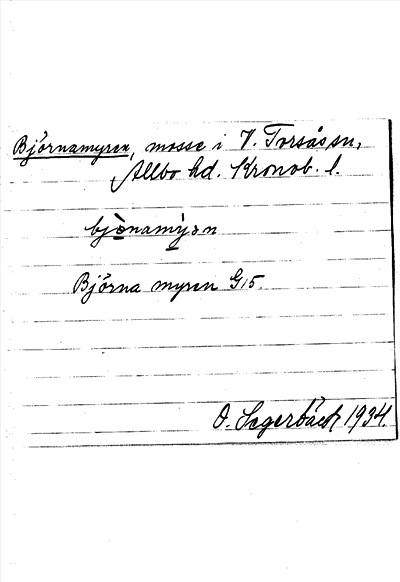 Björnamyren, mosse i V. Torsås sn,
Allbo hd. Kronob. l.
Björna myren G15.
O. Segerbäck 1934.